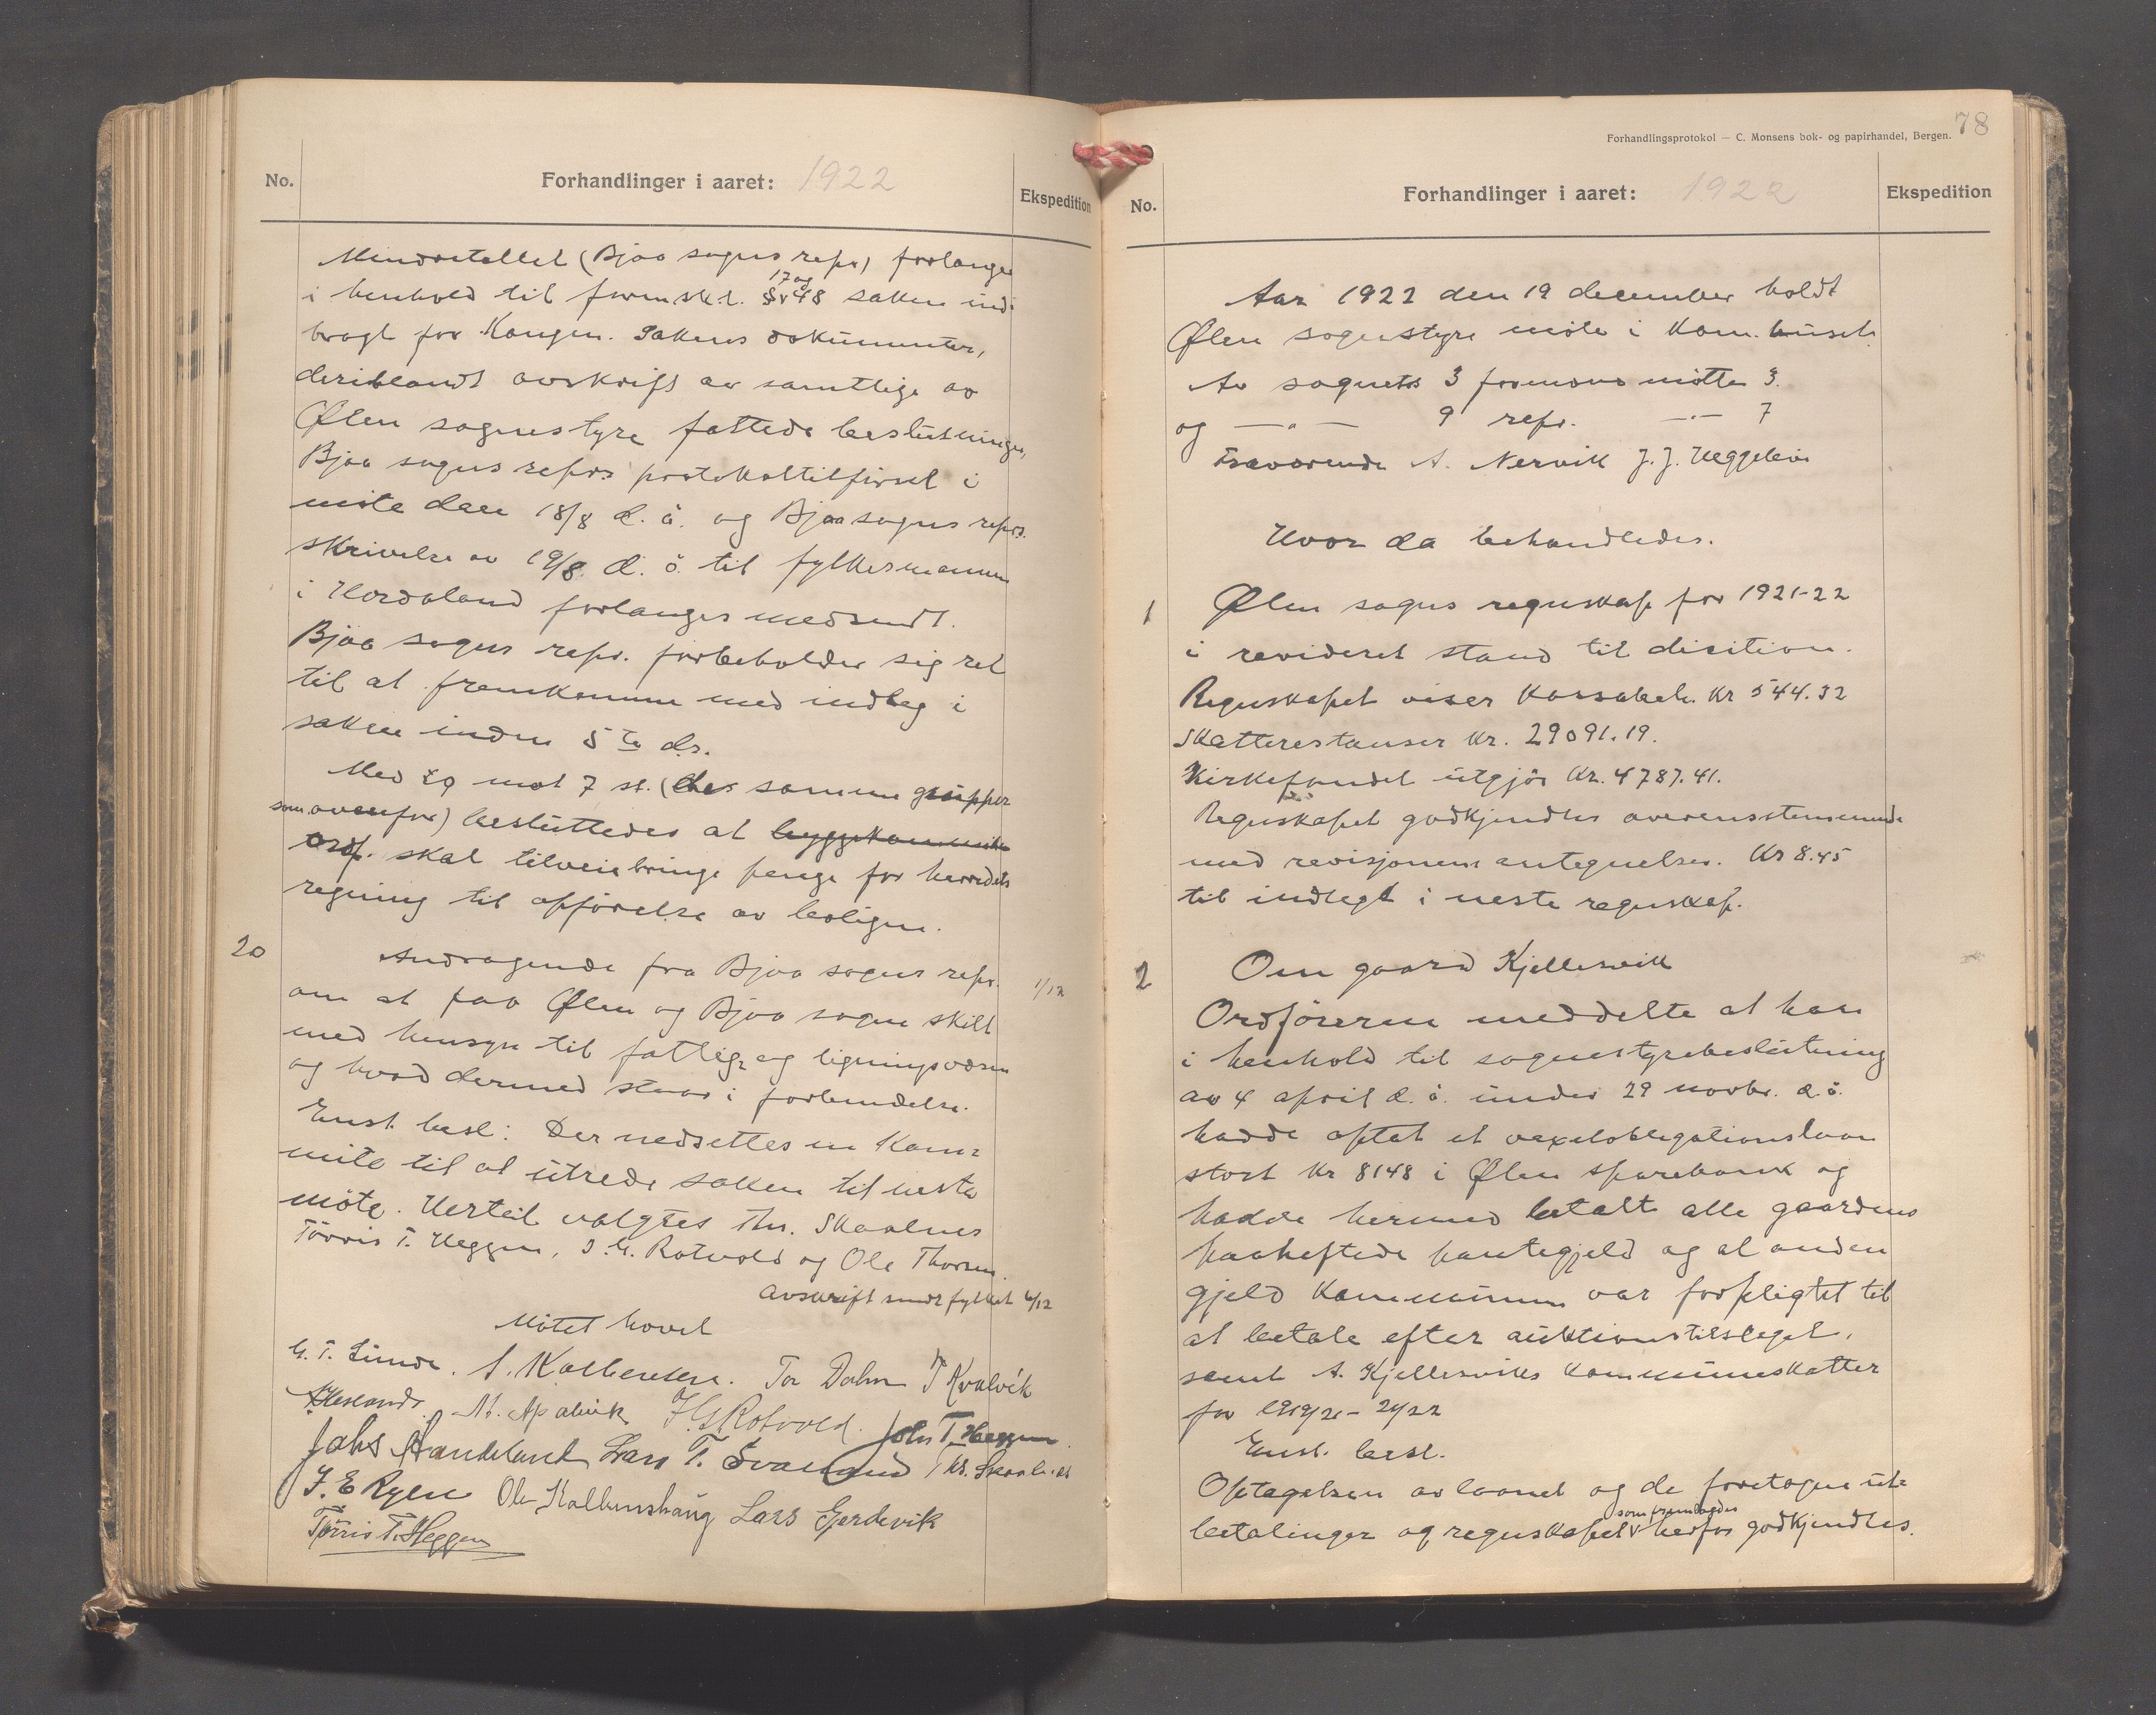 No. Forhandlinger i aaret: 1922 Ekspedition
Mindretallet (Bjoa sogns repr) forlanger
i henhold til formsk.l. § 17 og 48 saken ind-
bragt for Kongen. Sakens dokumenter,
deriblandt avskrift av samtlige av
Ølen sognestyre fattede beslutninger,
Bjoa sogns repr.s protokoltilførsel i
møte den 18/8 d. å. og Bjoa sogns repr.s
skrivelse av 19/8 d. å. til fylkesmannen
i Hordaland forlanges medsendt.
Bjoa sogns repr. forbeholder sig ret
til at fremkomme med indlæg i
saken inden 5te ds.
Med 29 mot 7 st. (de samme grupper
som ovenfor) besluttedes at byggekommiteen
Ordf. skal tilveiebringe penge for herredets
regning til opførelse av boligen.
20 Andragende fra Bjoa sogns repr. 1/12
om at faa Ølen og Bjoa sogne skilt
med hensyn til fattig- og ligningsvæsen
og hvad dermed staar i forbindelse.
Enst. besl: Der nedsettes en kom-
mite til at utrede saken til neste
møte. Hertil valgtes Ths. Skaalnes
Tørris T. Heggen, J. G. Rotvold og Ole Thorsen.
avskrift sendt fylket 4/12
Møtet hævet
G. T. Lunde. S. Kalbeinsen. Tor Dahn T Kvalvik
A. Apalvik J G Rotvold. John T. Heggen
Jahs Handeland Lars T. Svaland Ths. Skaalnes
J. E Rylen Ole Kolbenshaug Lars Gjerdevik
Tørris T. Heggen
78
Forhandlingsprotokol — C. Monsens bok- og papirhandel, Bergen.
No. Forhandlinger i aaret: 1922 Ekspedition
Aar 1922 den 19 december holdt
Ølen sognestyre møte i Kom.huset.
Av sognets 3 formænd møtte 3.
og —"— 9 repr. —"— 7
Fraværende A. Nervik J. J. Heggelein
Hvor da behandledes.
1 Ølen sogns regnskap for 1921-22
i revideret stand til disition.
Regnskapet viser Kassabeh. Kr 544.32
Skatterestanser kr. 29091.19.
Kirkefondet utgjør Kr. 4787.41.
Regnskapet godkjendtes overensstemmende
med revisjonens antegnelser. Kr 8.45
til indtegt i neste regnskap.
2 Om gaard Kjellesvik
Ordføreren meddelte at han
i henhold til sognestyrebeslutning
av 4 april d. å. under 29 novbr. d. å.
hadde optat et vexelobligationslaan
stort kr 8148 i Ølen sparebank og
hadde hermed betalt alle gaardens
paaheftede pantegjeld og al anden
gjeld kommunen var forpligtet til
at betale efter auktionstilslaget,
samt A. Kjellesviks kommuneskatter
for 1919/20 - 21/22
Enst. besl.
Optagelsen av laanet og de foretagne ut-
betalinger og regnskapet som fremlagdes herfor godkjendtes.